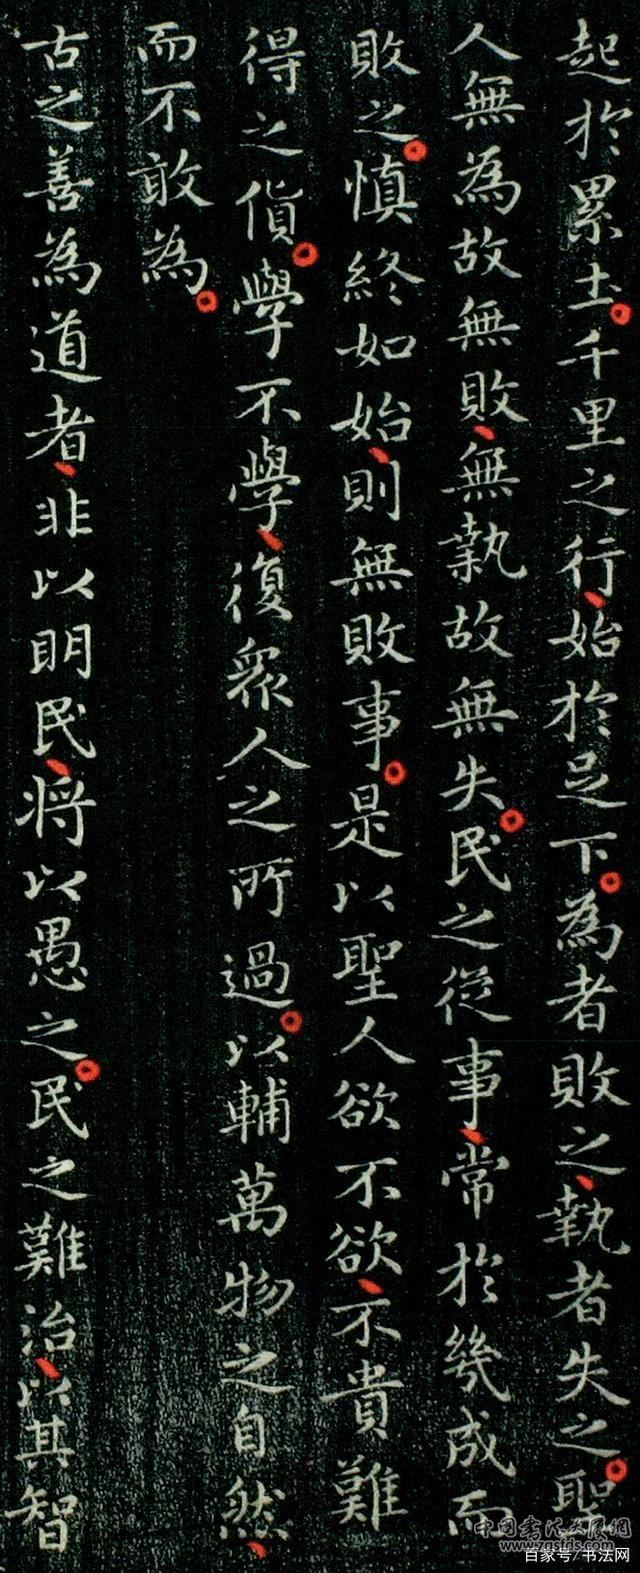 起於累土。千里之行、始於足下。為者敗之、執者失之。聖
人無為故無敗、無執故無失。民之從事、常於幾成而
敗之。慎終如始、則無敗事。是以聖人欲不欲、不貴難
得之貨。學不學、復眾人之所過。以輔萬物之自然、
而不敢為。
古之善為道者、非以明民、將以愚之。民之難治、以其智
中国书法大展网
www.zgsfds.com
百家号/书法网